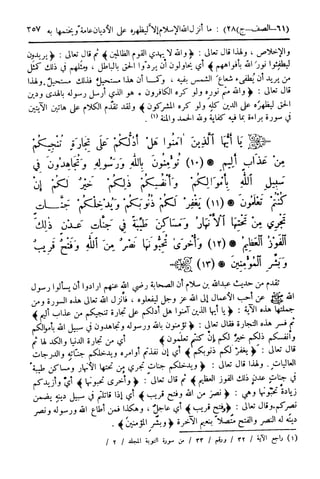 (٦١-الصف-ج٢٨): ما أنزل الله الإسلام إلا ليظهره على الأديان عامة ويختمها به ٣٥٧
والإخلاص ، ولهذا قال تعالى : ﴿ والله لا يهدي القوم الظالمين ﴾ ثم قال تعالى : ﴿ يريدون
ليطفئوا نور الله بأفواههم ﴾ أي يحاولون أن يردوا الحق بالباطل ، ومثلهم في ذلك كمثل
من يريد أن يُطفىء شعاع الشمس بفيه ، وكما أن هذا مستحيل فذلك مستحيل ، ولهذا
قال تعالى : ﴿ والله متم نوره ولو كره الكافرون * هو الذي أرسل رسوله بالهدى ودين
الحق ليظهره على الدين كله ولو كره المشركون ﴾ ولقد تقدم الكلام على هاتين الآيتين
في سورة براءة بما فيه كفاية ولله الحمد والمنة (١)
يَا أَيُّهَا الَّذِينَ آمَنُوا هَلْ أَدُلُّكُمْ عَلَى تِجَارَةٍ تُنْجِيكُمْ
مِنْ عَذَابٍ أَلِيمٍ * (١٠) تُؤْمِنُونَ بِاللَّهِ وَرَسُولِهِ وَتُجَاهِدُونَ فِي
سَبِيلِ اللَّهِ بِأَمْوَالِكُمْ وَأَنْفُسِكُمْ ذَلِكُمْ خَيْرٌ لَكُمْ إِنْ
كُنْتُمْ تَعْلَمُونَ * (١١) يَغْفِرْ لَكُمْ ذُنُوبَكُمْ وَيُدْخِلْكُمْ جَنَّاتٍ
تَجْرِي مِنْ تَحْتِهَا الْأَنْهَارُ وَمَسَاكِنَ طَيِّبَةً فِي جَنَّاتِ عَدْنٍ ذَلِكَ
الْفَوْزُ الْعَظِيمُ * (١٢) وَأُخْرَى تُحِبُّونَهَا نَصْرٌ مِنَ اللَّهِ وَفَتْحٌ قَرِيبٌ
وَبَشِّرِ الْمُؤْمِنِينَ * (١٣)
تقدم من حديث عبدالله بن سلام أن الصحابة رضي الله عنهم ارادوا أن يسألوا رسول
الله ﷺ عن أحب الأعمال إلى الله عز وجل ليفعلوه ، فأنزل الله تعالى هذه السورة ومن
جملتها هذه الآية : ﴿ يا أيها الذين آمنوا هل أدلكم على تجارة تنجيكم من عذاب أليم ﴾
ثم فسر هذه التجارة فقال تعالى : ﴿ تؤمنون بالله ورسوله وتجاهدون في سبيل الله بأموالكم
وأنفسكم ذلكم خير لكم إن كنتم تعلمون ﴾ أي من تجارة الدنيا والكد لها ثم
قال تعالى : ﴿ يغفر لكم ذنوبكم ﴾ أي إن نفذتم أوامره ويدخلكم جناته والدرجات
العاليات . ولهذا قال تعالى : ﴿ ويدخلكم جنات تجري من تحتها الأنهار ومساكن طيبة
في جنات عدن ذلك الفوز العظيم ﴾ ثم قال تعالى : ﴿ وأخرى تحبونها ﴾ أي وأزيدكم
زيادة تحبونها وهي : ﴿ نصر من الله وفتح قريب ﴾ أي إذا قاتلتم في سبيل دينه يضمن
نصركم . وقال تعالى : ﴿ وفتح قريب ﴾ أي عاجل ، وهكذا فمن أطاع الله ورسوله ونصر
دينه له النصر والفتح متصلاً بنعيم الآخرة ﴿ وبشر المؤمنين ﴾ .
(١) راجع الآية / ٣٢ / ورقم / ٣٣ / من سورة التوبة المجلد / ٢ /